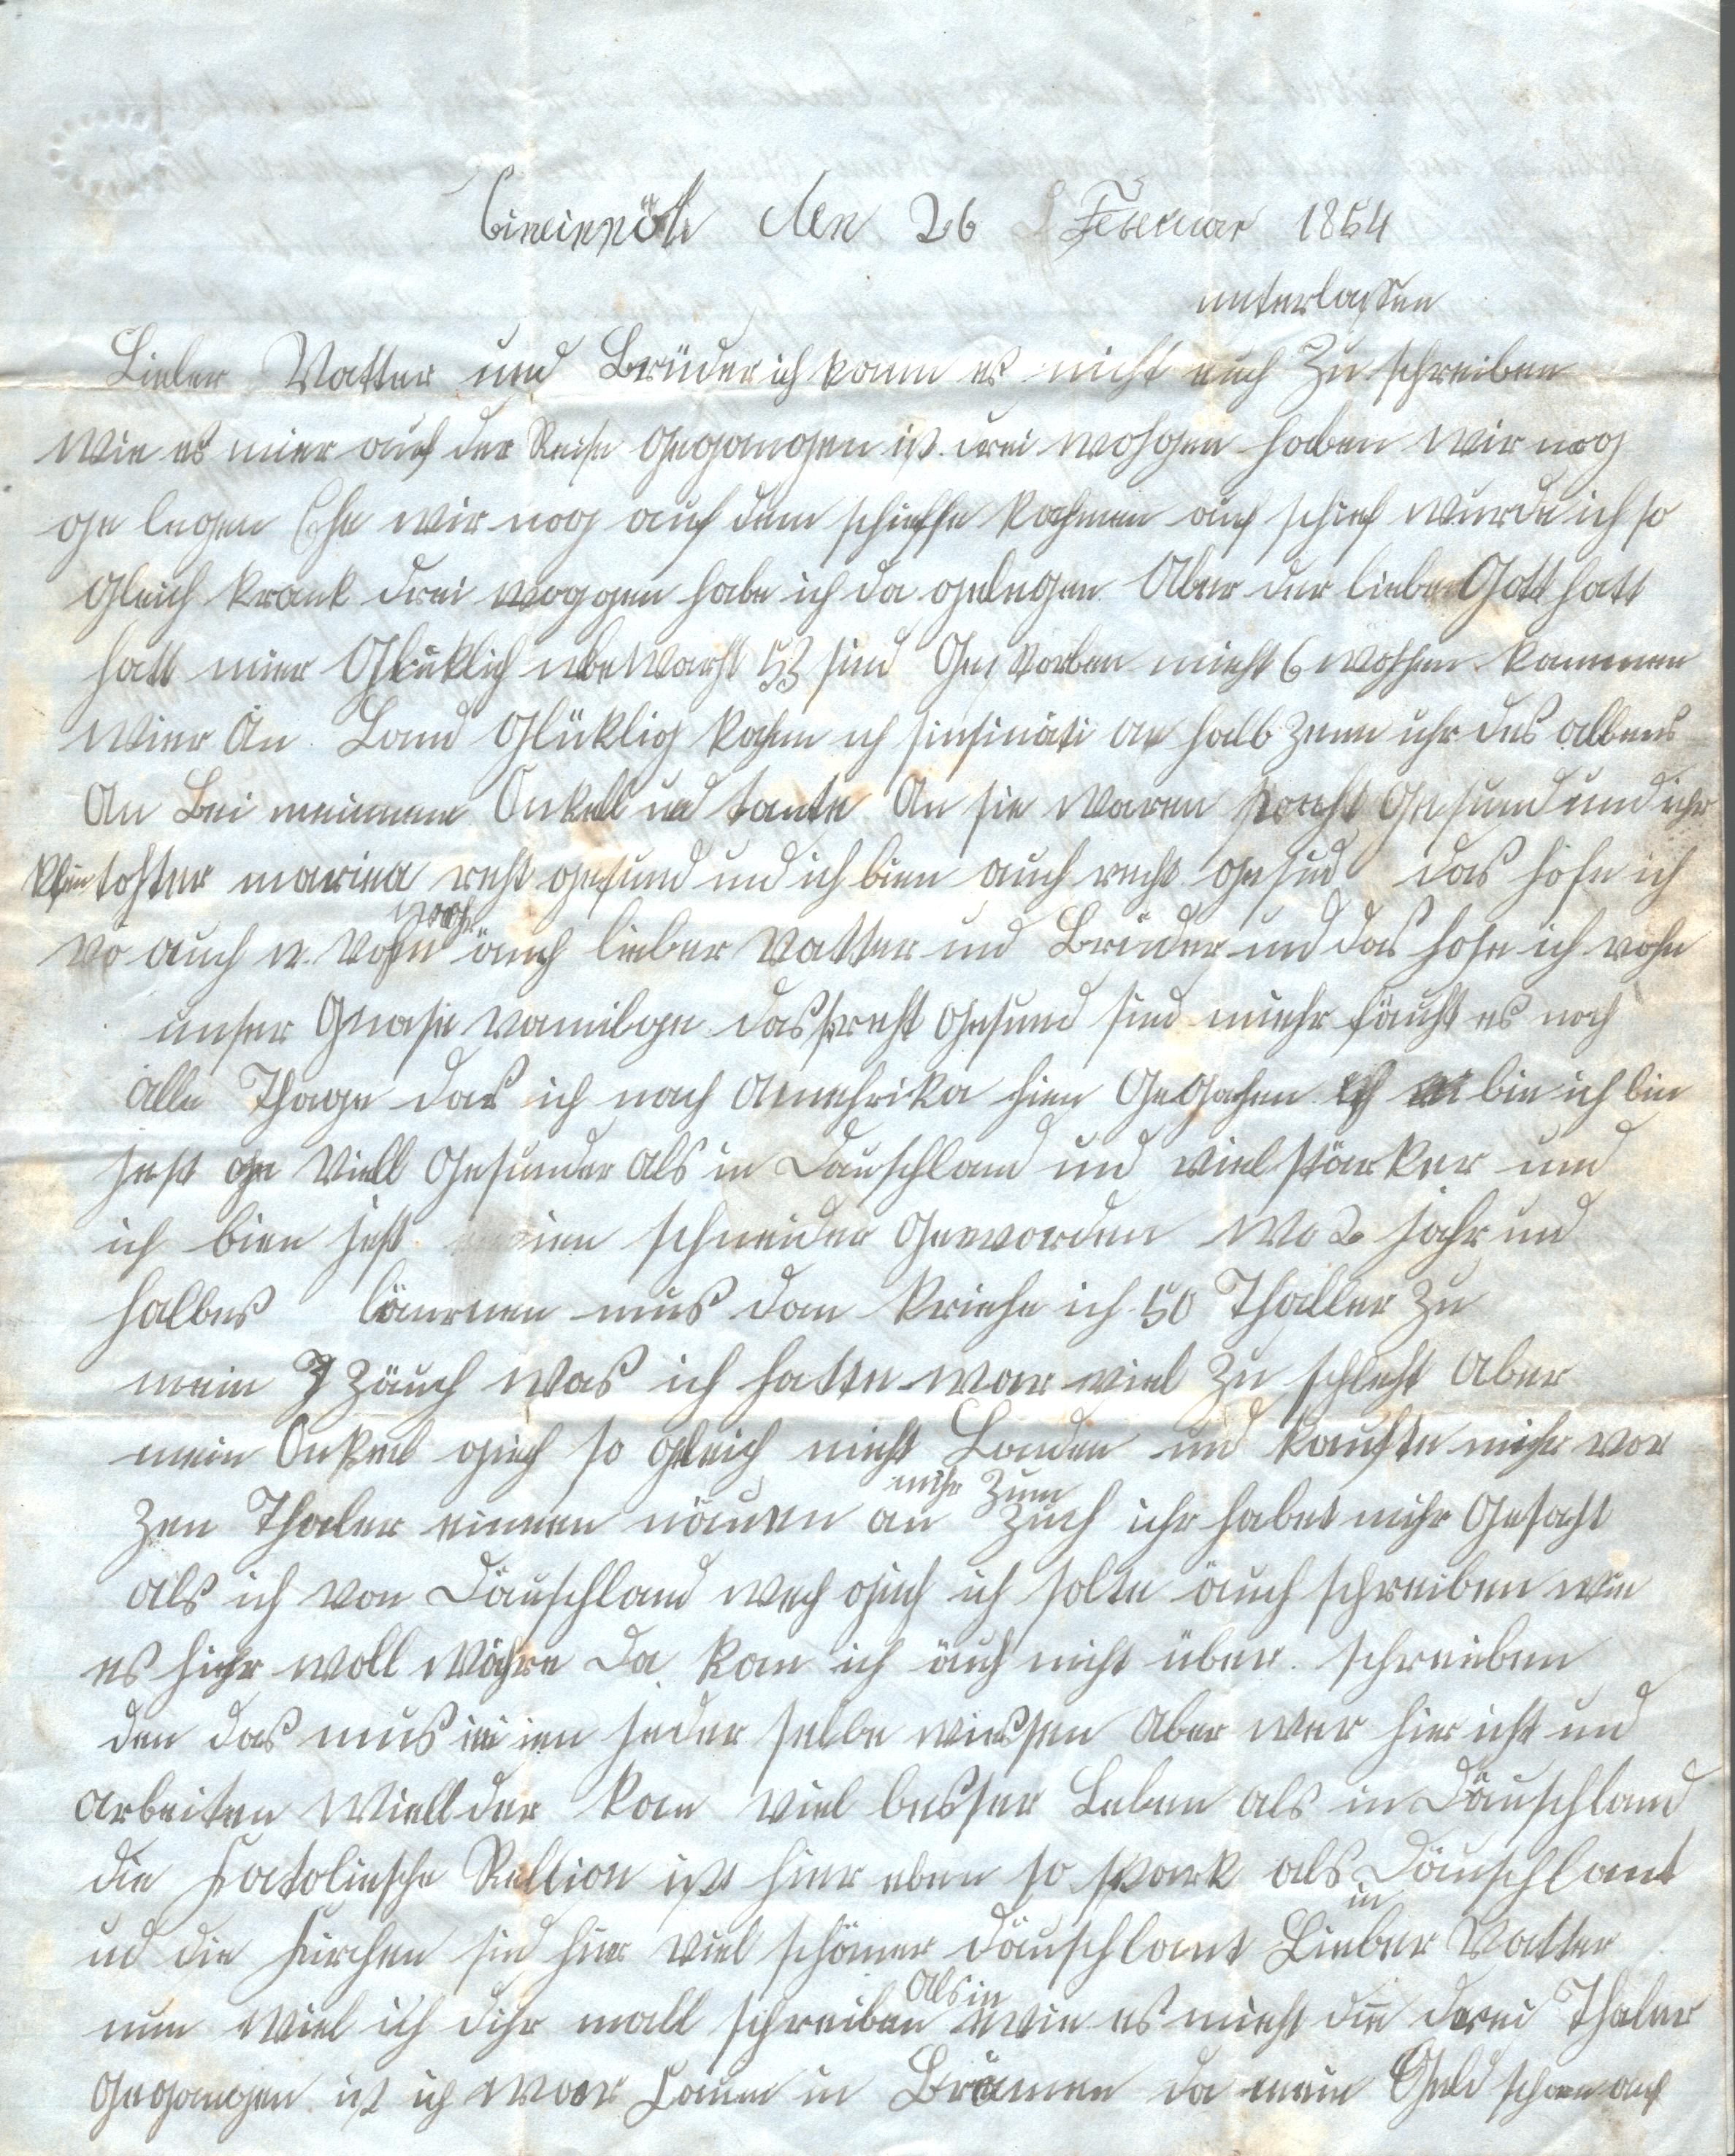 den 26 Februar 1854
unterlassen
Lieber Vatter und Brüder ich kann es nicht euch Zu schreiben
wie es mier auf der Reise gegangen ist drei wochgen haben wir nog
ge legen Ehe wir nog auf dem schieffe kahmen auf schief wurde ich so
gleich krank drei woggen habe ich da gelegen Aber der liebe Gott hatt
hatt mier Glüklich bewarht 53 sind Gestorben nicht 6 wochen kammen
wier An Land Glüklig kahm ich sinsinäti an halb zenn uhr des abbens
An Bei meinnem Onkell und tante An sie waren recht Gesund und ihr
klein tohter mariea recht gesund und ich bien auch recht gesud das hofe ich
vo auch v. vohn noch äuch lieber Vatter und Brüder und das hofe ich vohn
unser Gnase vamilge das recht Gesund sind miehr fäucht es noch
alle Thage das ich nach Amehrika hien Gegahen bin ich bin
jest ge viell Gesunder als in Dauschland und viel stärker und
ich bien jest ein schneider Geworden wo 2 jahr und
halbes läurnen mus dan kriehe ich 50 Thaller zu
mein Zäuch was ich hatte war viel zu schleht Aber
mein Onkel gieh so gleich mieht Landen und kaufte mihr vor
zen Thaler einnen näuen an mihr Zum Zuch ihr habet mihr Gesaht
als ich von Däuschland wech gieh ich solte äuch schreiben wie
es hiehr woll währe Da kan ich äuch nicht über schreiben
den das mus ien jeder selbe wiessen Aber wer hier ist und
arbeiten Wiell der kan viel besser Leben als in Däuschland
die Katoliesche Rellion ist hier eben so stark als in Däuschlant
ud die Kirchen sind hier viel schöner als in Däuschlant Lieber Vatter
nun wiel ich dihr mall schreiben wie es mieht die drei Thaler
gegangen ist ich waar Kaum in Brämen da mein Geld schon auf